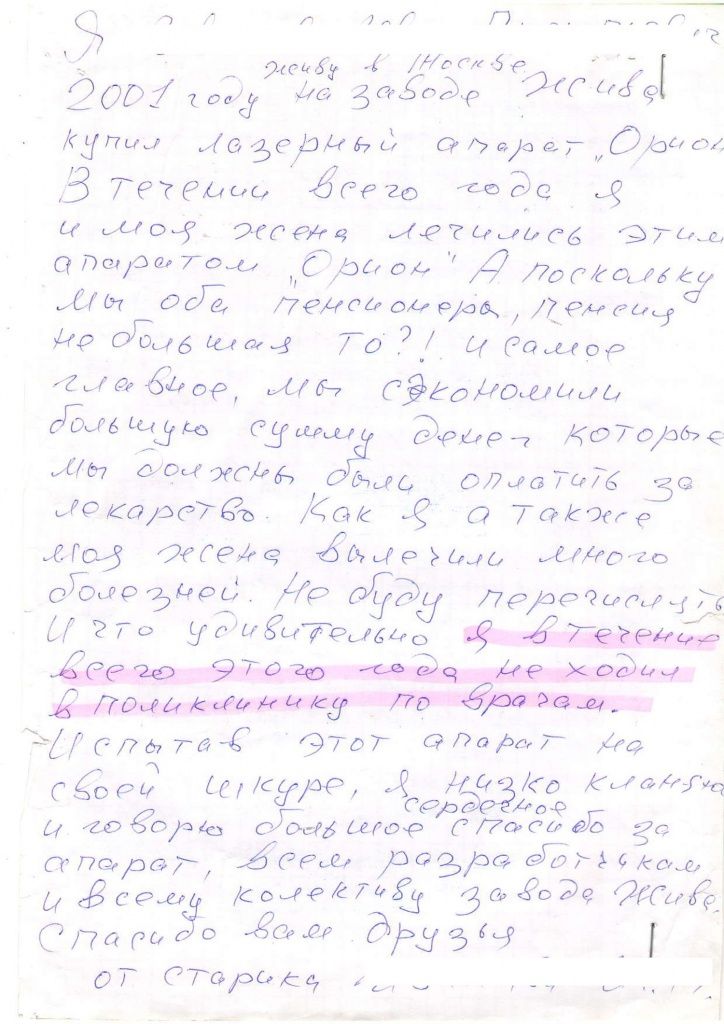 Я
живу в Москве
2001 году на заводе Жива
купил лазерный апарат „Орион
В течении всего года я
и моя жена лечились этим
апаратом „Орион" А поскольку
мы оба пенсионеры, пенсия
не большая то?! и самое
главное, мы сэкономили
большую сумму денег которые
мы должны были оплатить за
лекарство. Как я а также
моя жена вылечили много
болезней. Не буду перечислять
И что удивительно я в течение
всего этого года не ходил
в поликлинику по врачам.
Испытав этот апарат на
своей шкуре, я низко кланяюсь
сердечное
и говорю большое спасибо за
апарат, всем разработчикам
и всему колективу завода Жива.
Спасибо вам друзья
от старика